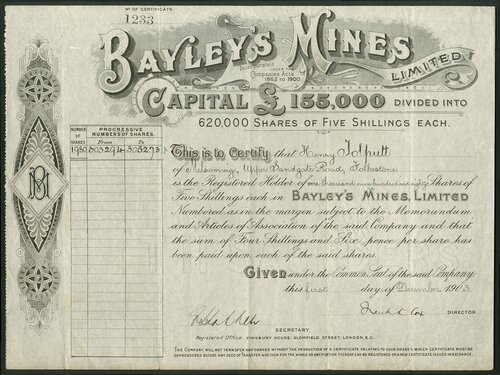 No OF CERTIFICATE.
1233
BAYLEY'S MINES
LIMITED.
Incorporated
UNDER THE
Companies Acts
1862 TO 1900.
CAPITAL £155,000 DIVIDED INTO
620,000 SHARES OF FIVE SHILLINGS EACH.
NUMBER OF SHARES
PROGRESSIVE NUMBERS OF SHARES.
From To
1980 303294 305273
This is to Certify that Henry
of Upper Sandgate Road, Folkestone
is the Registered Holder of one thousand nine hundred and eighty Shares of
Five Shillings each in BAYLEY'S MINES, LIMITED
Numbered as in the margin subject to the Memorandum
and Articles of Association of the said Company and that
the sum of Four Shillings and Six pence per share has
been paid upon each of the said shares.
Given under the Common Seal of the said Company,
this first day of December 1903
DIRECTOR
SECRETARY.
Registered Office FINSBURY HOUSE, BLOMFIELD STREET, LONDON, E.C.
THE COMPANY WILL NOT TRANSFER ANY SHARES WITHOUT THE PRODUCTION OF A CERTIFICATE RELATING TO SUCH SHARES, WHICH CERTIFICATE MUST BE
SURRENDERED BEFORE ANY DEED OF TRANSFER WHETHER FOR THE WHOLE OR ANY PORTION THEREOF CAN BE REGISTERED OR A NEW CERTIFICATE ISSUED IN EXCHANGE.